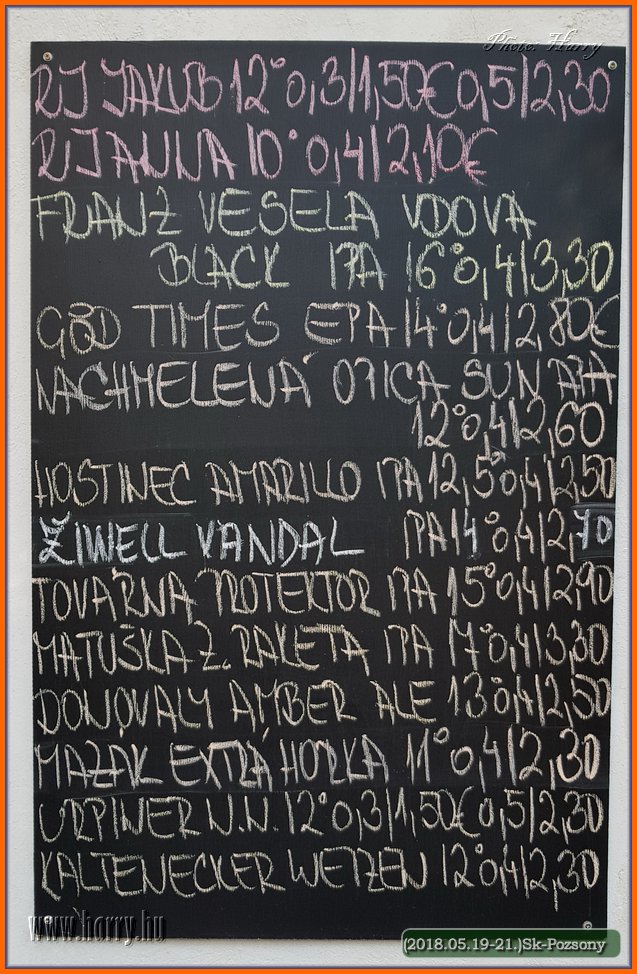 Photo: Harry
RJ JAKUB 12° 0,3/1,50€ 0,5/2,30
RJ ANNA 10° 0,4/2,10€
FRANZ VESELA VDOVA
BLACK IPA 16° 0,4/3,30
GOOD TIMES EPA 14° 0,4/2,80€
NACHMELENÁ OPICA SUN APA
12° 0,4/2,60
HOSTINEC AMARILLO IPA 12,5° 0,4/2,50
ŽIWELL VANDAL IPA 14° 0,4/2,70
TOVARŇA PROTEKTOR IPA 15° 0,4/2,90
MATUŠKA Z. RAKETA IPA 17° 0,4/3,30
DONOVALY AMBER ALE 13° 0,4/2,50
MAZÁK EXTRA HORKÁ 11° 0,4/2,30
URPINER N.N. 12° 0,3/1,50€ 0,5/2,30
KALTENECKER WEIZEN 12° 0,4/2,30
www.horry.hu
(2018.05.19-21.)Sk-Pozsony